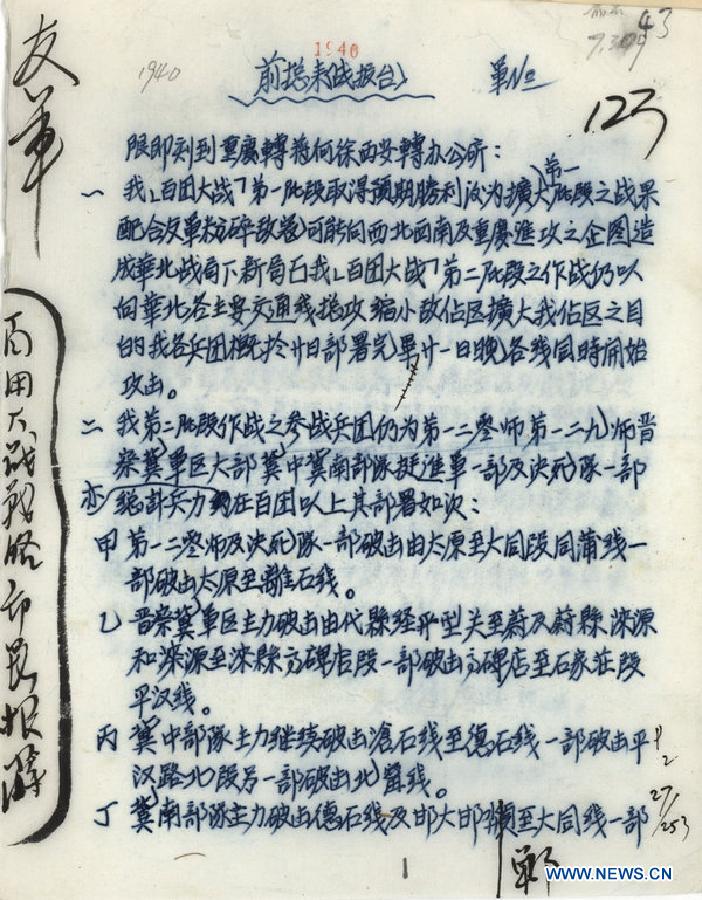 1940
1940
43
前总来战报台
军No
123
限即刻到重慶轉蔣何徐西安轉办公厅：
一 我「百团大战」第一阶段取得预期勝利后为擴大第一阶段之战果
配合友军粉碎敌寇可能向西北西南及重慶進攻之企图造
成華北战局下新局面我「百团大战」第二阶段之作战仍以
向華北各主要交通线总攻缩小敌佔区擴大我佔区之目
的我各兵团概於廿日部署完畢廿一日晚各线同時開始
攻击。
二 我第二阶段作战之参战兵团仍为第一二零师第一二九师晋
察冀军区大部冀中冀南部隊挺進軍一部及决死隊一部
总計兵力在百团以上其部署如次：
甲 第一二零师及决死隊一部破击由太原至大同段同蒲线一
部破击太原至離石线。
乙 晋察冀军区主力破击由代縣经平型关至蔚及蔚縣淶源
和淶源至淶縣方碑店段一部破击方碑店至石家莊段
平汉线。
丙 冀中部隊主力继续破击滄石线至德石线一部破击平
汉路北段另一部破击北寧线。
丁 冀南部隊主力破击德石线及邯大邯至大同线一部
友军
百团大战战略部署报蒋
1
鄲
WWW.NEWS.CN